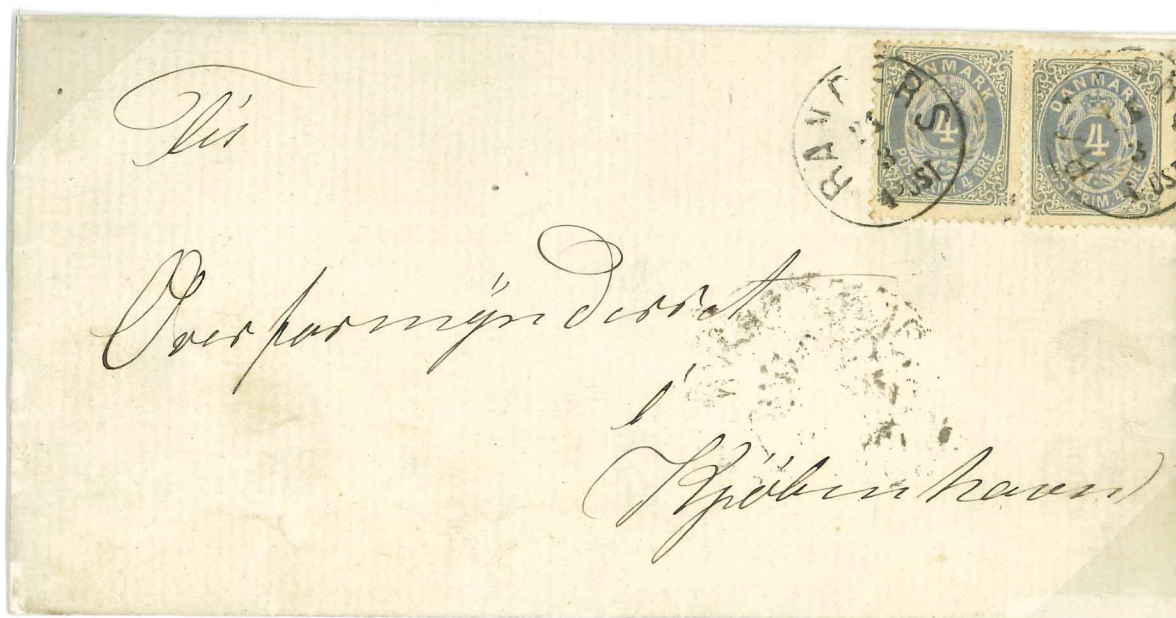 Til
Overformynderiet
i
Kjöbenhavn
RANDERS
3
POST
DANMARK
4
POSTFRIM. 4 ØRE
DANMARK
4
POSTFRIM. 4 ØRE
3
POST